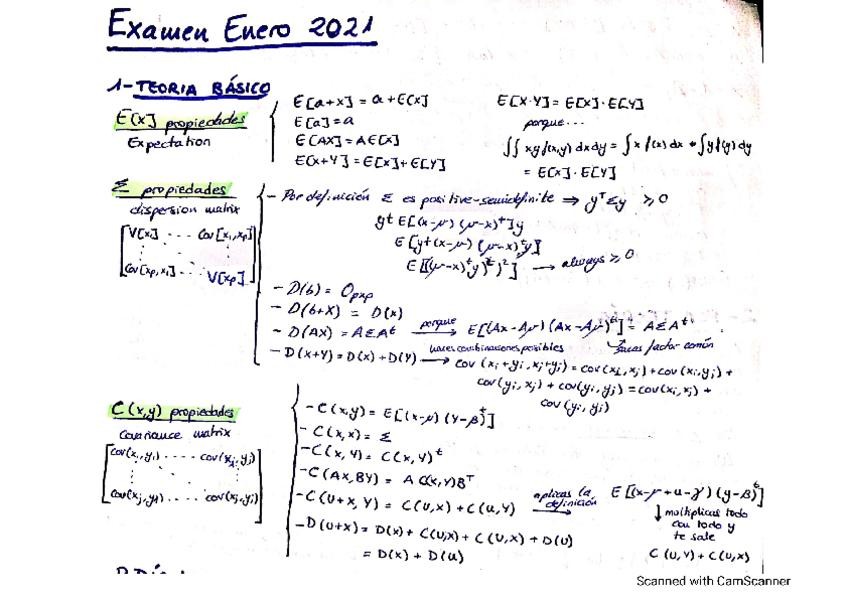 Examen Enero 2021
1-TEORIA BÁSICO
E[X] propiedades
Expectation
E[a+X] = a+E[X]
E[a]=a
E[AX]=AE[X]
E[X+Y]=E[X]+E[Y]
E[X·Y]=E[X]·E[Y]
porque...
∫∫ xy f(x,y) dxdy = ∫x f(x) dx * ∫y f(y) dy
= E[X]·E[Y]
Σ propiedades
dispersion matrix
V[x1] ... Cov[x1,xp]
Cov[xp,x1] ... V[xp]
- Por definición Σ es positive-semidefinite ⇒ yᵀΣy ≥0
yt E[(x-μ)(μ-x)ᵗ]y
E[yt(x-μ)(μ-x)ᵗy]
E[((μ-x)ᵗy)ᵗ)²] → always ≥ 0
- D(b) = Opxp
- D(b+X) = D(x)
- D(AX) = AΣAᵗ porque → E[(Ax-Aμ)(Ax-Aμ)ᵗ] = AΣAᵗ
sacas factor común
- D(X+Y)=D(X)+D(Y) haces combinaciones posibles → cov(xi+yi,xj+yj)=cov(xi,xj)+cov(xi,yj)+
cov(yi,xj)+cov(yi,yj)=cov(xi,xj)+
cov(yi,yj)
C(x,y) propiedades
Covariance matrix
- C(x,y) = E[(x-μ)(y-β)ᵗ]
- C(x,x) = Σ
- C(x,Y) = C(x,Y)ᵗ
- C(AX,BY) = A C(X,Y)Bᵀ
- C(U+X,Y) = C(U,X)+C(U,Y) aplicas la definición → E[(x-μ+u-γ)(y-β)ᵗ]
↓ multiplicas todo
con todo y
te sale
C(U,Y)+C(U,X)
- D(U+X) = D(X)+C(U,X)+C(U,X)+D(U)
= D(X)+D(U)
Scanned with CamScanner